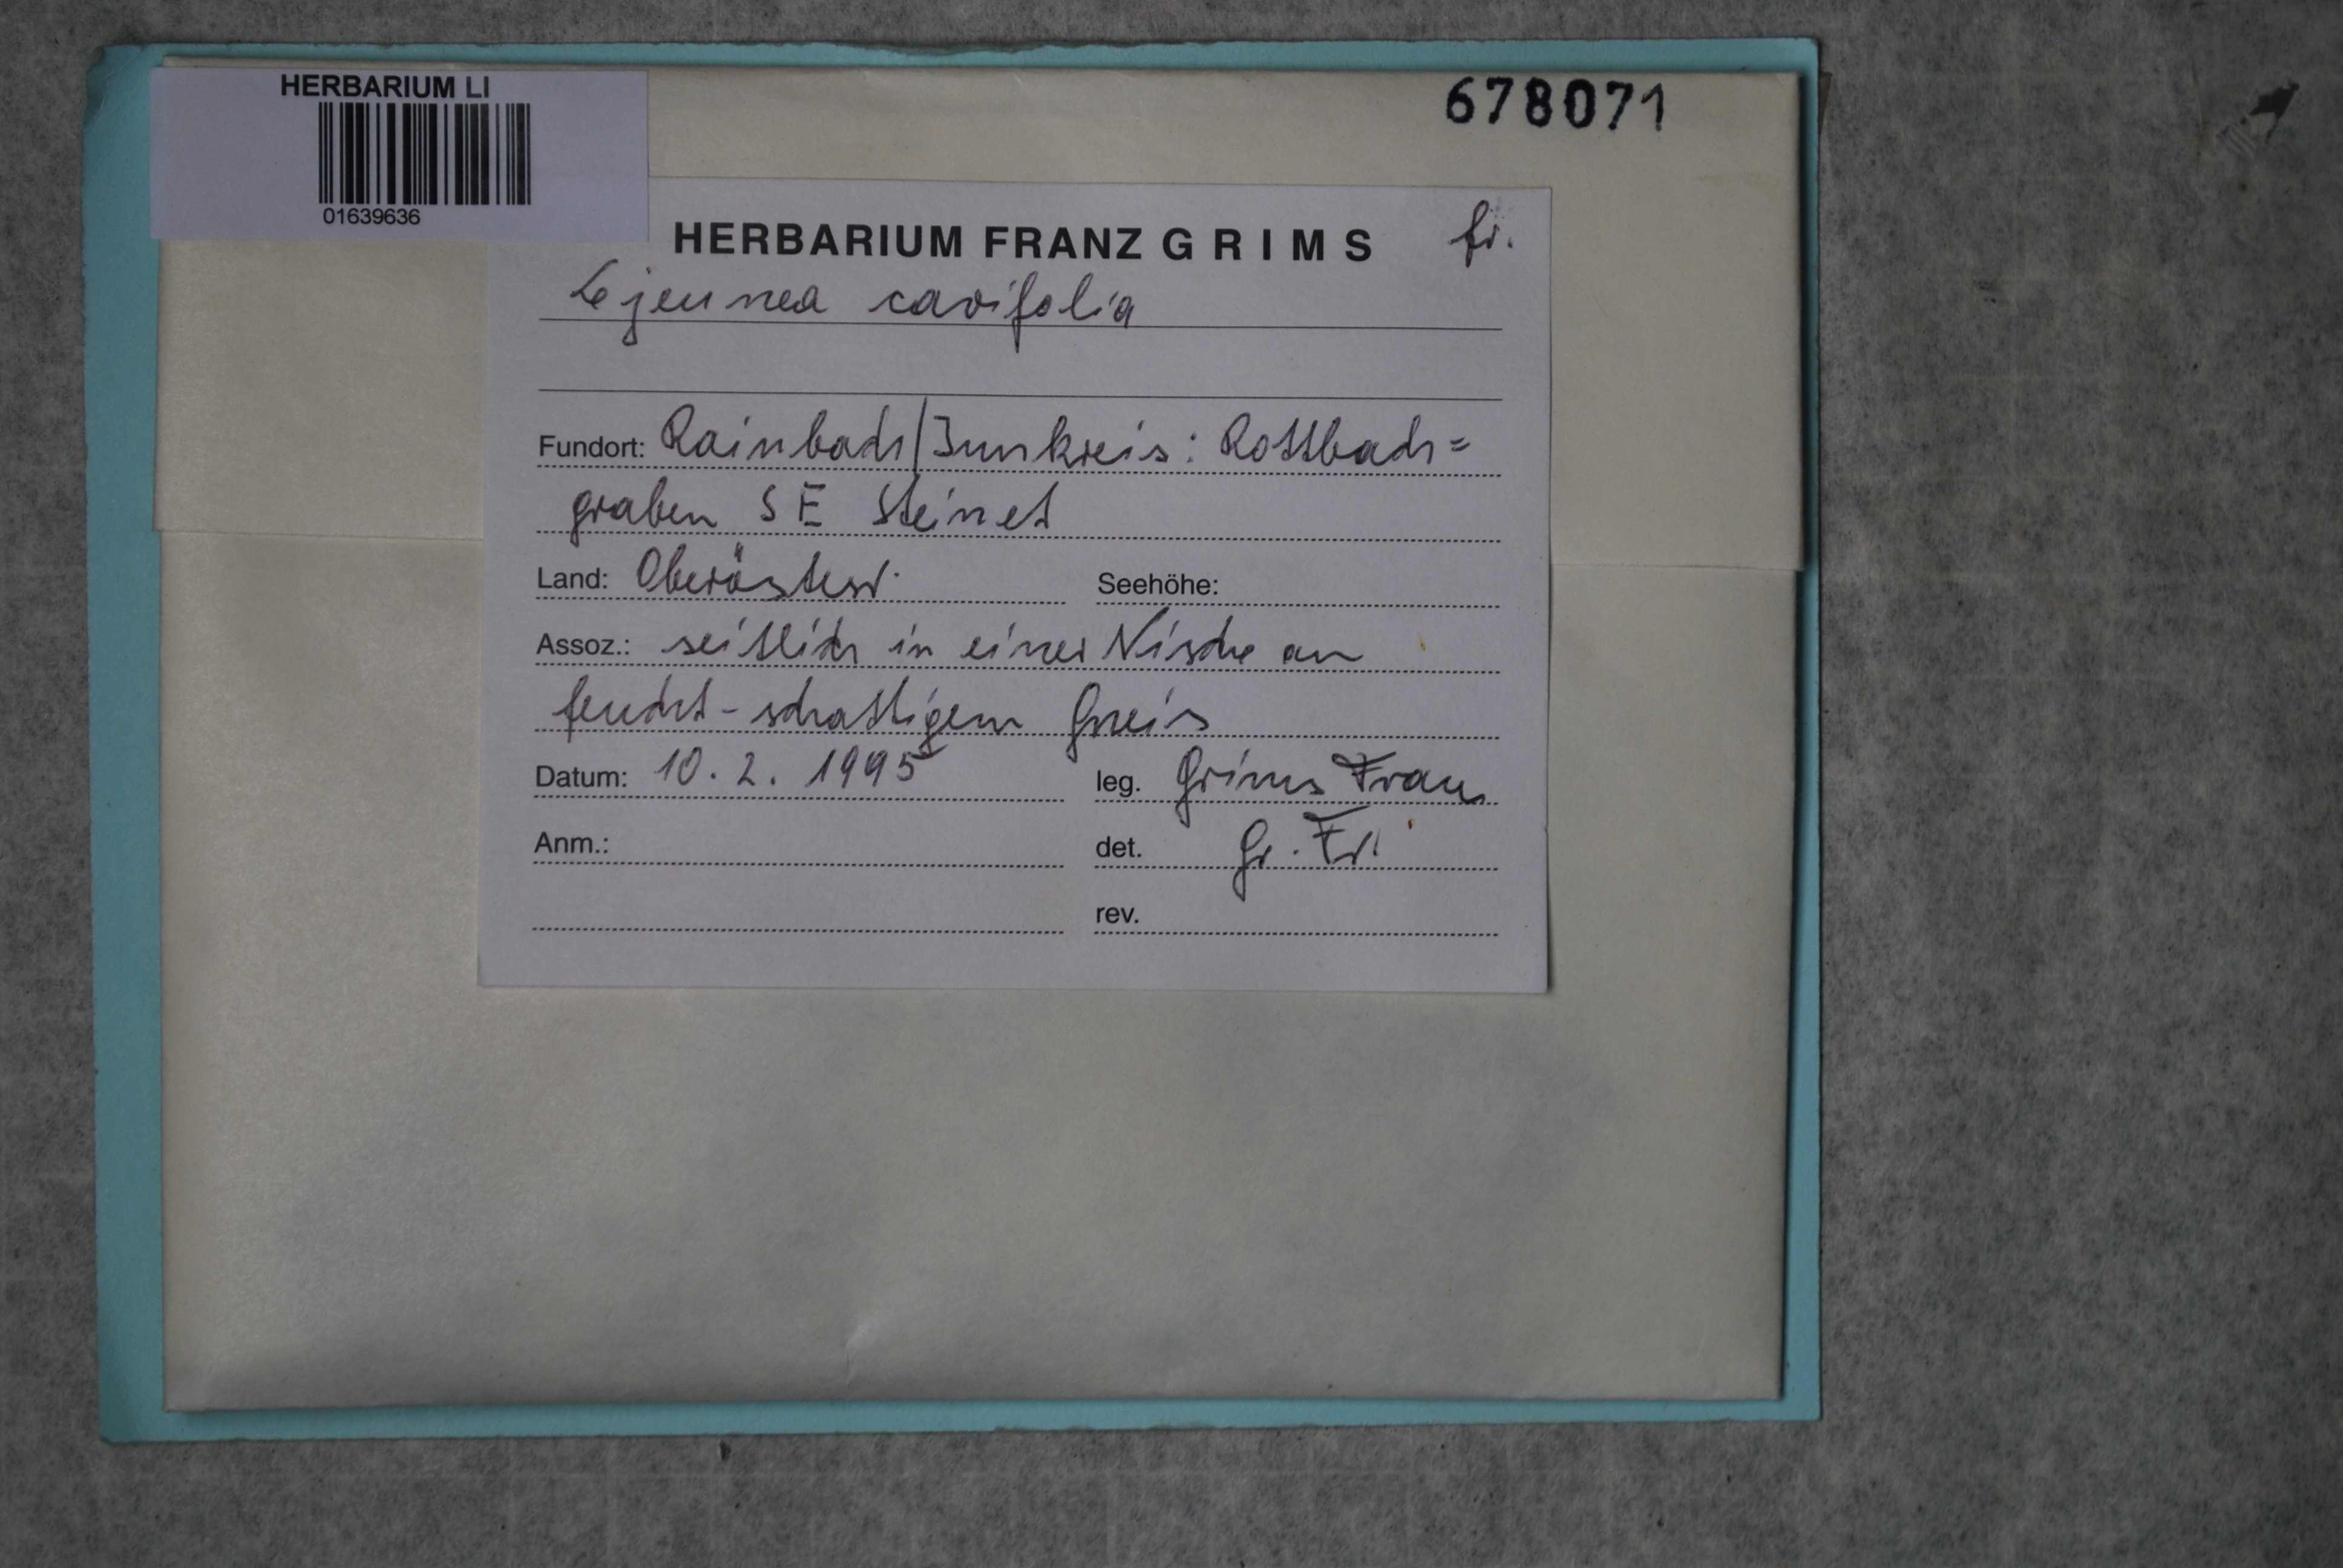 HERBARIUM LI
01639636
678071
HERBARIUM FRANZ GRIMS fr.
Lejeunea cavifolia
Fundort: Rainbach/Innkreis: Rottbach=
graben SE Steinet
Land: Oberösterr. Seehöhe:
Assoz.: seitlich in einer Nische an
feucht-schattigem Gneis
Datum: 10. 2. 1995 leg. Grims Franz
Anm.: det. Gr. Fr.
rev.